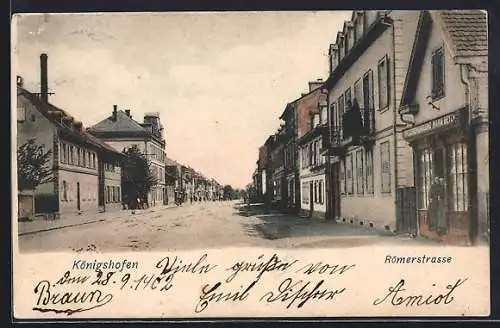 Königshofen
Römerstrasse
den 28.9.1902 Viele grüße von
Braun Emil Discher Amiot